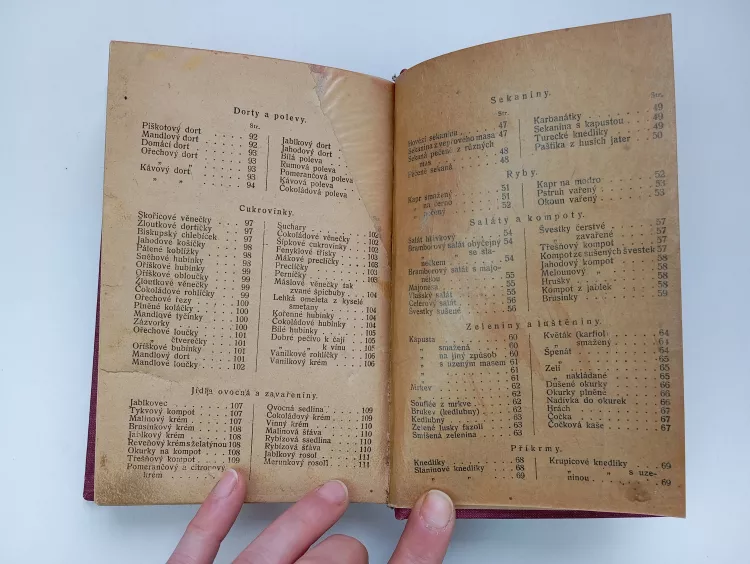 Dorty a polevy.
Str.
Piškotový dort . . . . 92
Mandlový dort . . . . 92
Domácí dort . . . . 92
Ořechový dort . . . . 93
„ „ . . . . 93
Kávový dort . . . . 93
„ „ . . . . 94
Jablkový dort
Jahodový dort
Bílá poleva
Rumová poleva
Pomerančová poleva
Kávová poleva
Čokoládová poleva
Cukrovinky.
Skořicové věnečky . . 97
Žloutkové dortíčky . . 97
Biskupský chlebíček . . 97
Jahodové košíčky . . 98
Pálené kobližky . . 98
Sněhové hubinky . . 99
Oříškové hubinky . . 99
Oříškové obloučky . . 99
Žloutkové věnečky . . 99
Čokoládové rohlíčky . . 99
Ořechové řezy . . 100
Plněné koláčky . . 100
Mandlové tyčinky . . 100
Zázvorky . . 100
Ořechové loučky . . 101
„ čtverečky . . 101
Oříškové hubinky . . 101
Mandlový dort . . 101
Mandlové loučky . . 102
Suchary . . 102
Čokoládové věnečky . . 102
Šípkové cukrovinky . . 102
Fenyklové třísky . . 102
Mákové preclíčky . . 103
Preclíčky . . 103
Perníčky . . 103
Máslové věnečky tak
zvané špichuby . . 104
Lehká omeleta z kyselé
smetany . . 104
Kořenné hubinky . . 104
Čokoládové hubinky . . 104
Bílé hubinky . . 105
Dobré pečivo k čaji
k vínu . . 105
Vanilkové rohlíčky . . 106
Vanilkový krém . . 106
Jídla ovocná a zavařeniny.
Jablkovec . . 107
Tykvový kompot . . 107
Malinový krém . . 107
Brasinkový krém . . 108
Jablkový krém . . 108
Reveňový krém s želatýnou 108
Okurky na kompot . . 108
Třešňový kompot . . 109
Pomerančový a citronový
krém
Ovocná sedlina . . 109
Čokoládový krém . . 109
Vinný krém . . 110
Malinová šťáva . . 110
Rybízová saedlina . . 110
Rybízová šťáva . . 110
Jablkový rosol . . 111
Merunkový rosoll . . 111
Sekaniny.
Str.
Hovězí sekaninu . . 47
Sekanina z vepřového masa 47
Sekaná pečeně z různých
mas . . 48
. . 48
Str.
Karbanátky . . 49
Sekanina s kapustou . . 49
Turecké knedlíky . . 49
Paštika z husích jater . . 50
Ryby.
Kapr smažený . . 51
„ na černo . . 51
„ . . 52
Kapr na modro . . 52
Pstruh vařený . . 53
Okoun vařený . . 53
Saláty a kompoty.
Salát hlávkový . . 54
Bramborový salát obyčejný
se sla-
nečkem . . 54
Bramborový salát s majo-
nézou . . 55
Majonéza . . 55
Vlašský salát . . 55
Celerový salát . . 56
Švestky sušené . . 56
Švestky čerstvé . . 57
„ zavařené . . 57
Třešňový kompot . . 57
Kompot ze sušených švestek 57
Jahodový kompot . . 58
Melounový . . 58
Hrušky . . 58
Kompot z jablek . . 58
Brusinky . . 59
Zeleniny a luštěniny.
Kapusta . . 60
„ smažená . . 60
„ na jiný způsob . . 60
„ s uzeným masem . . 61
„ . . 61
Mrkev . . 61
„ . . 62
Soufflé z mrkve . . 62
Brukev (kedlubny) . . 62
Kedlubny . . 62
Zelené lusky fazolí . . 63
Smíšená zelenina . . 63
Květák (karfiol) . . 64
„ smažený . . 64
Špenát . . 64
„ . . 65
Zelí . . 65
„ nakládané . . 65
Dušené okurky . . 66
Okurky plněné . . 66
Nádivka do okurek . . 66
Hrách . . 67
Čočka . . 67
Čočková kaše . . 67
Příkrmy.
Knedlíky . . 68
Slaninové knedlíky . . 68
„ „ . . 69
Krupicové knedlíky . . 69
„ „ s uze-
ninou . . 69